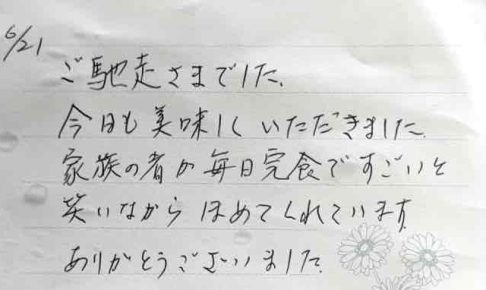 6/21
ご馳走さまでした.
今日も美味しくいただきました.
家族の者が毎日完食ですごいと
笑いながらほめてくれています.
ありがとうございました.